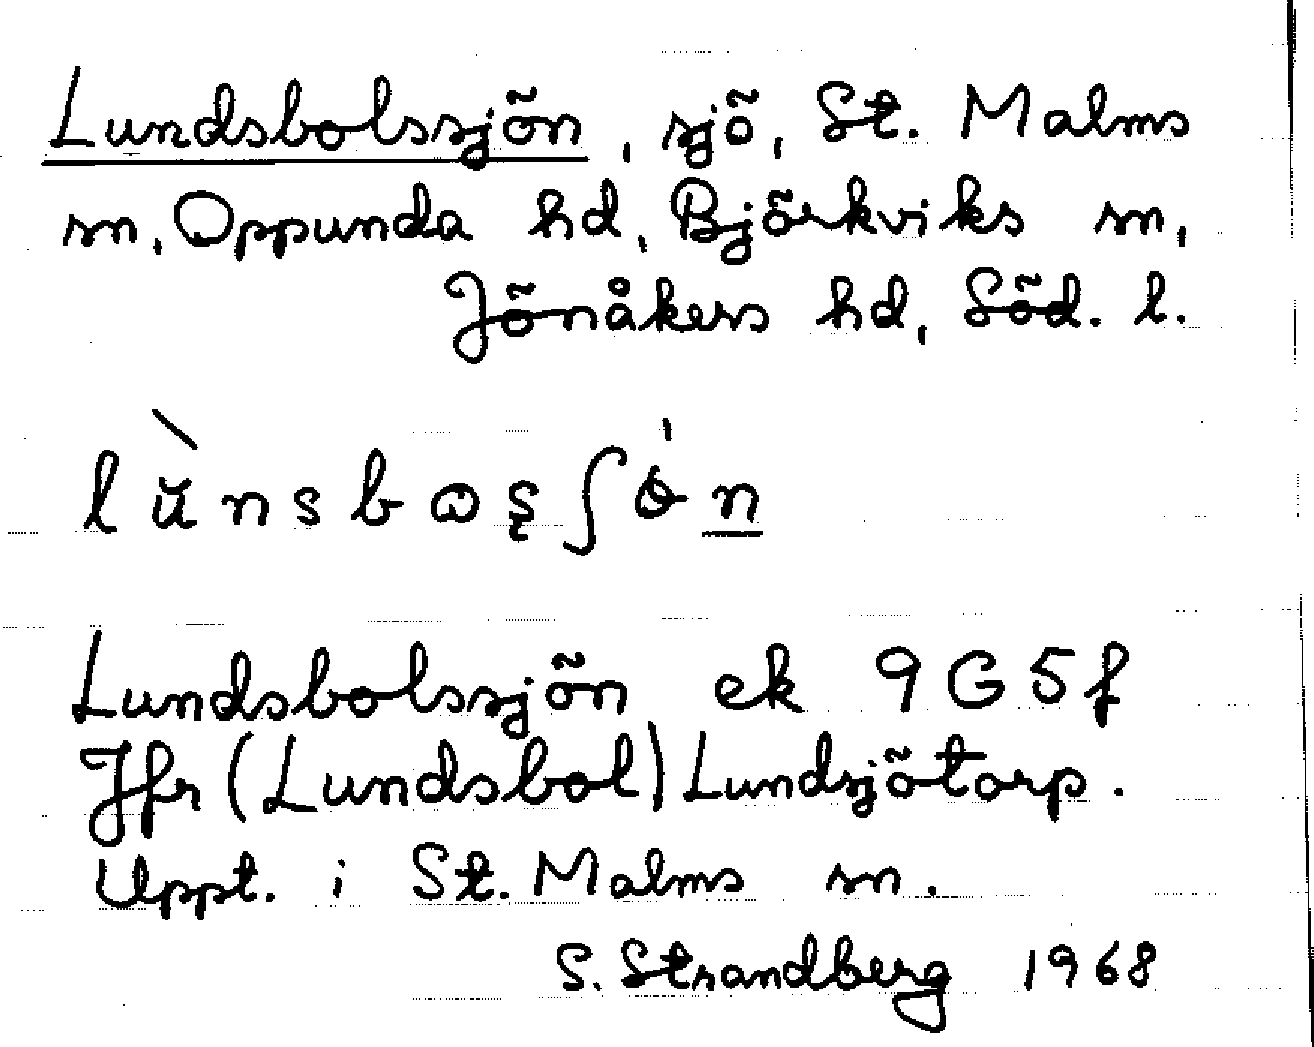 Lundsbolssjön, sjö, St. Malms
sn, Oppunda hd, Björkviks sn,
Jönåkers hd, Söd. l.
Lundsbolssjön ek 9G5f
Jfr (Lundsbol) Lundsjötorp.
Uppt. i St. Malms sn.
S. Strandberg 1968